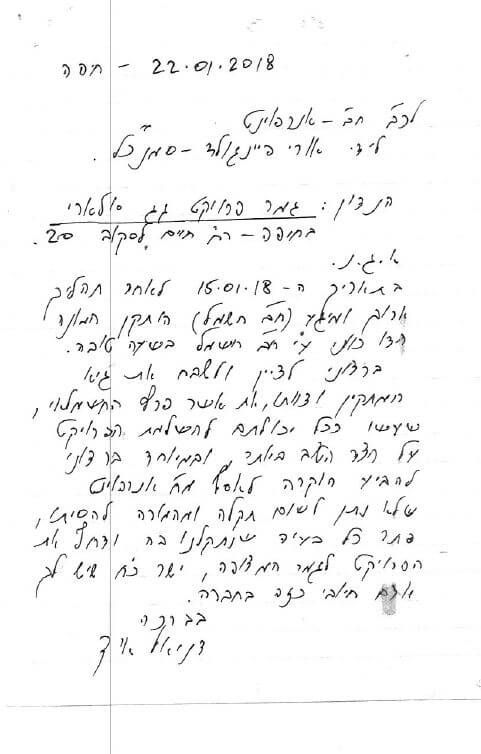 22.01.2018 - חיפה
לכב' חב' - אנרפוינט
לידי אורי פיינגולד - סמנכ"ל.
הנדון: גמר פרויקט גג סולארי
בחיפה - רח' חיים לסקוב 20.
א.ג.נ.
בתאריך ה-15.01.18 לאחר תהליך
ארוך ומייגע (חב' חשמל) הותקן המונה
הדו כווני ע"י חב' חשמל בשעה טובה.
ברצוני לציין ולשבח את גיא
המתקין וצוותו, את אשר פרץ החשמלאי,
שעשו ככל יכולתם להשלמת הפרויקט
על הצד הטוב ביותר, ובמיוחד ברצוני
להביע הוקרה לאסף מח' אנרפוינט
שלא נתן לשום תקלה ומהמורה להסיתו,
פתר כל בעיה שנתקלנו בה ודחף את
הפרויקט לגמר המצופה, ישר כח שיש לך
אדם חיובי כזה בחברה.
בברכה
דניאל